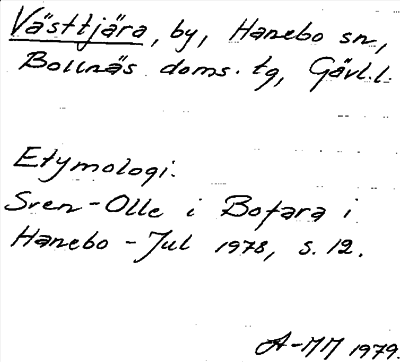 Västtjära, by, Hanebo sn,
Bollnäs doms. tg, Gävl.l.
Etymologi.
Sven-Olle i Bofara i
Hanebo - Jul 1978, s. 12.
A-MM 1979.